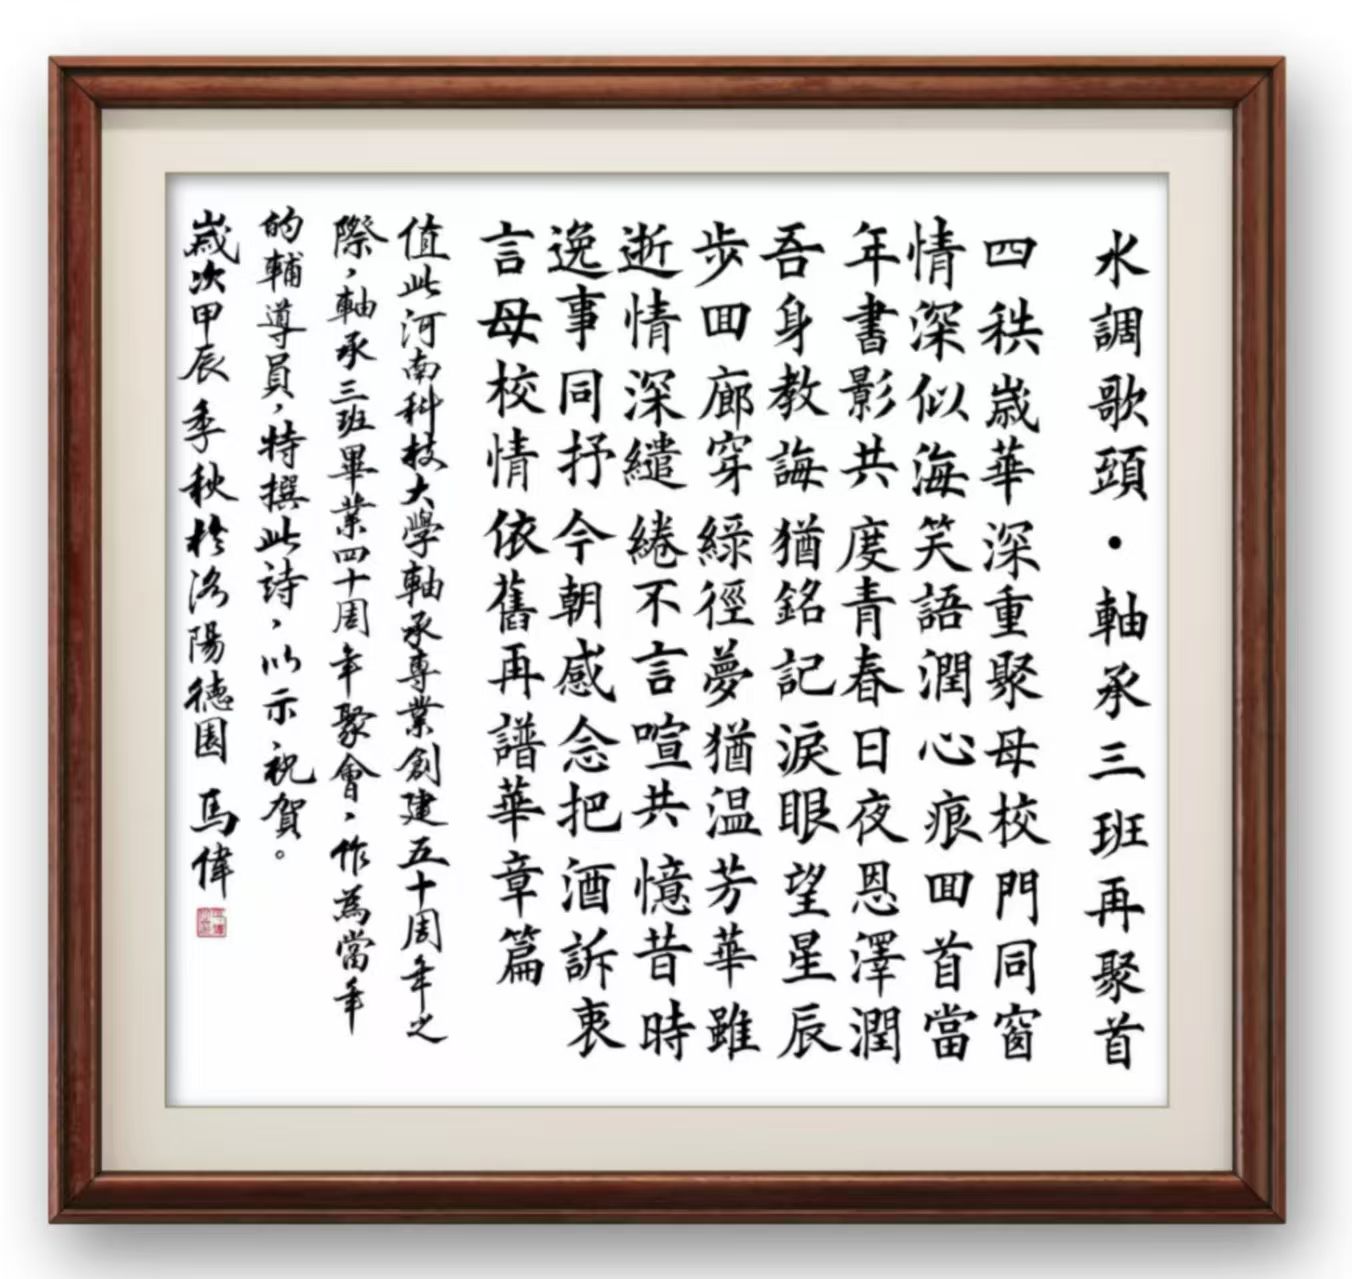 水調歌頭·軸承三班再聚首
四秩歲華深重聚母校門同窗
情深似海笑語潤心痕回首當
年書影共度青春日夜恩澤潤
吾身教誨猶銘記淚眼望星辰
步回廊穿綠徑夢猶温芳華雖
逝情深繾綣不言喧共憶昔時
逸事同抒今朝感念把酒訴衷
言母校情依舊再譜華章篇
值此河南科技大學軸承專業創建五十周年之
際，軸承三班畢業四十周年聚會，作為當年
的輔導員，特撰此詩，以示祝賀。
歲次甲辰季秋於洛陽德園 馬偉